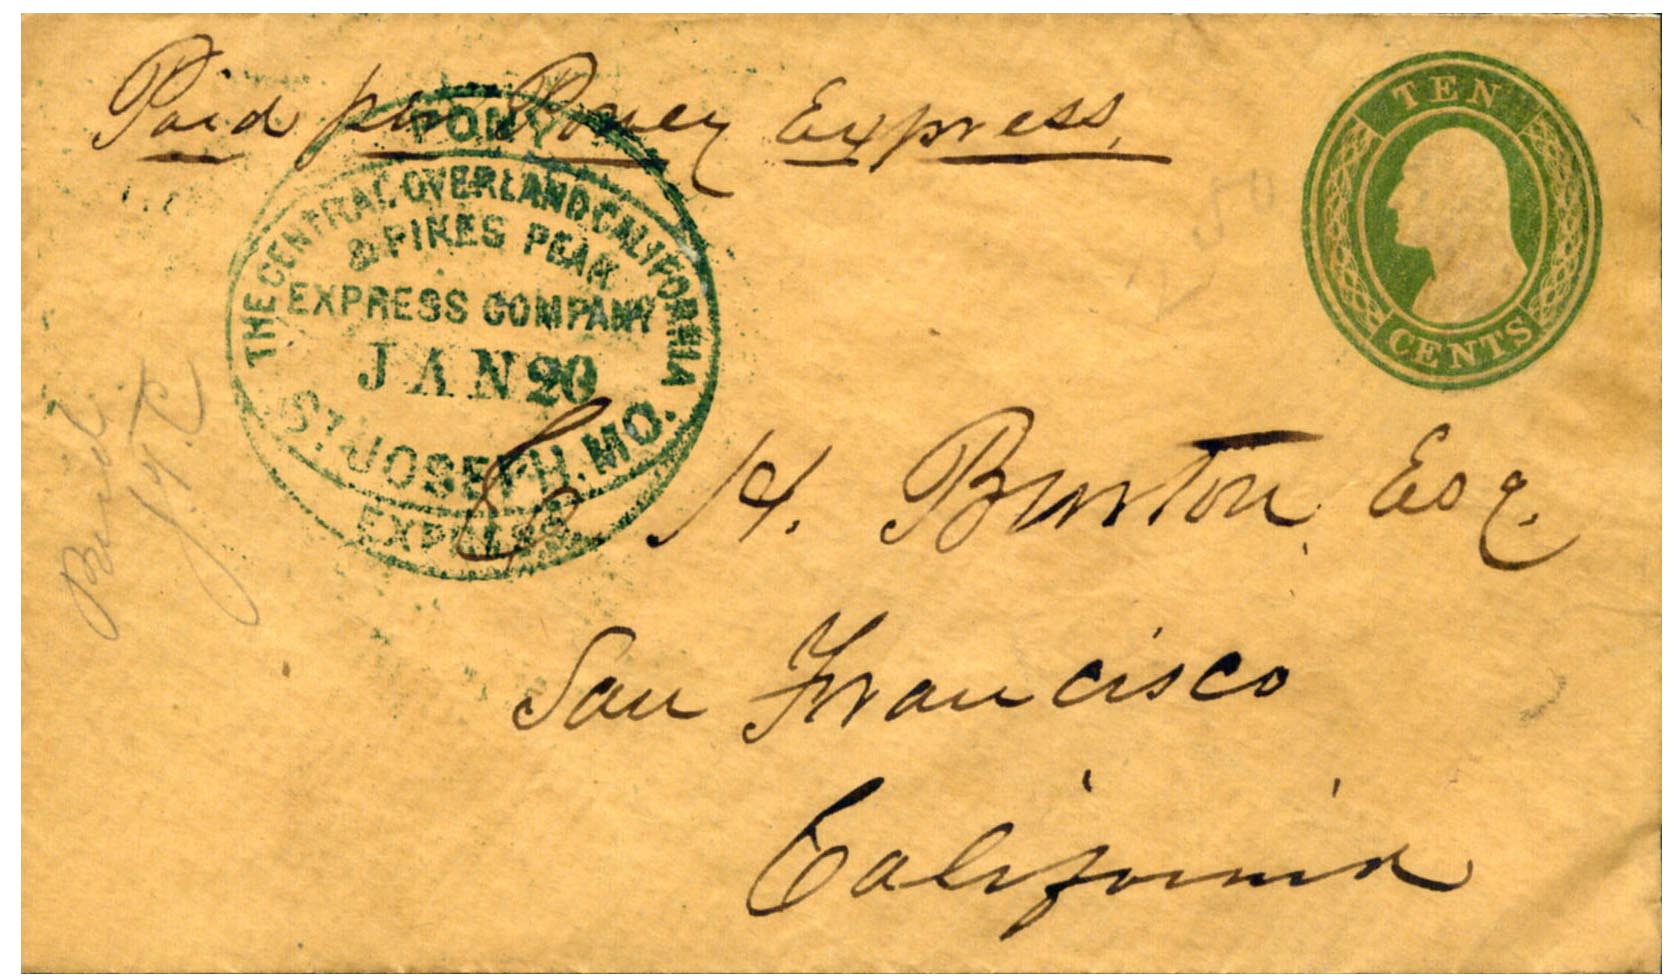 Paid per Poney Express.
PONY
THE CENTRAL OVERLAND CALIFORNIA
& PIKES PEAK
EXPRESS COMPANY
JAN 20
ST JOSEPH. MO.
EXPRESS
TEN
CENTS
50
H. Burton Esq.
San Francisco
California
Paid